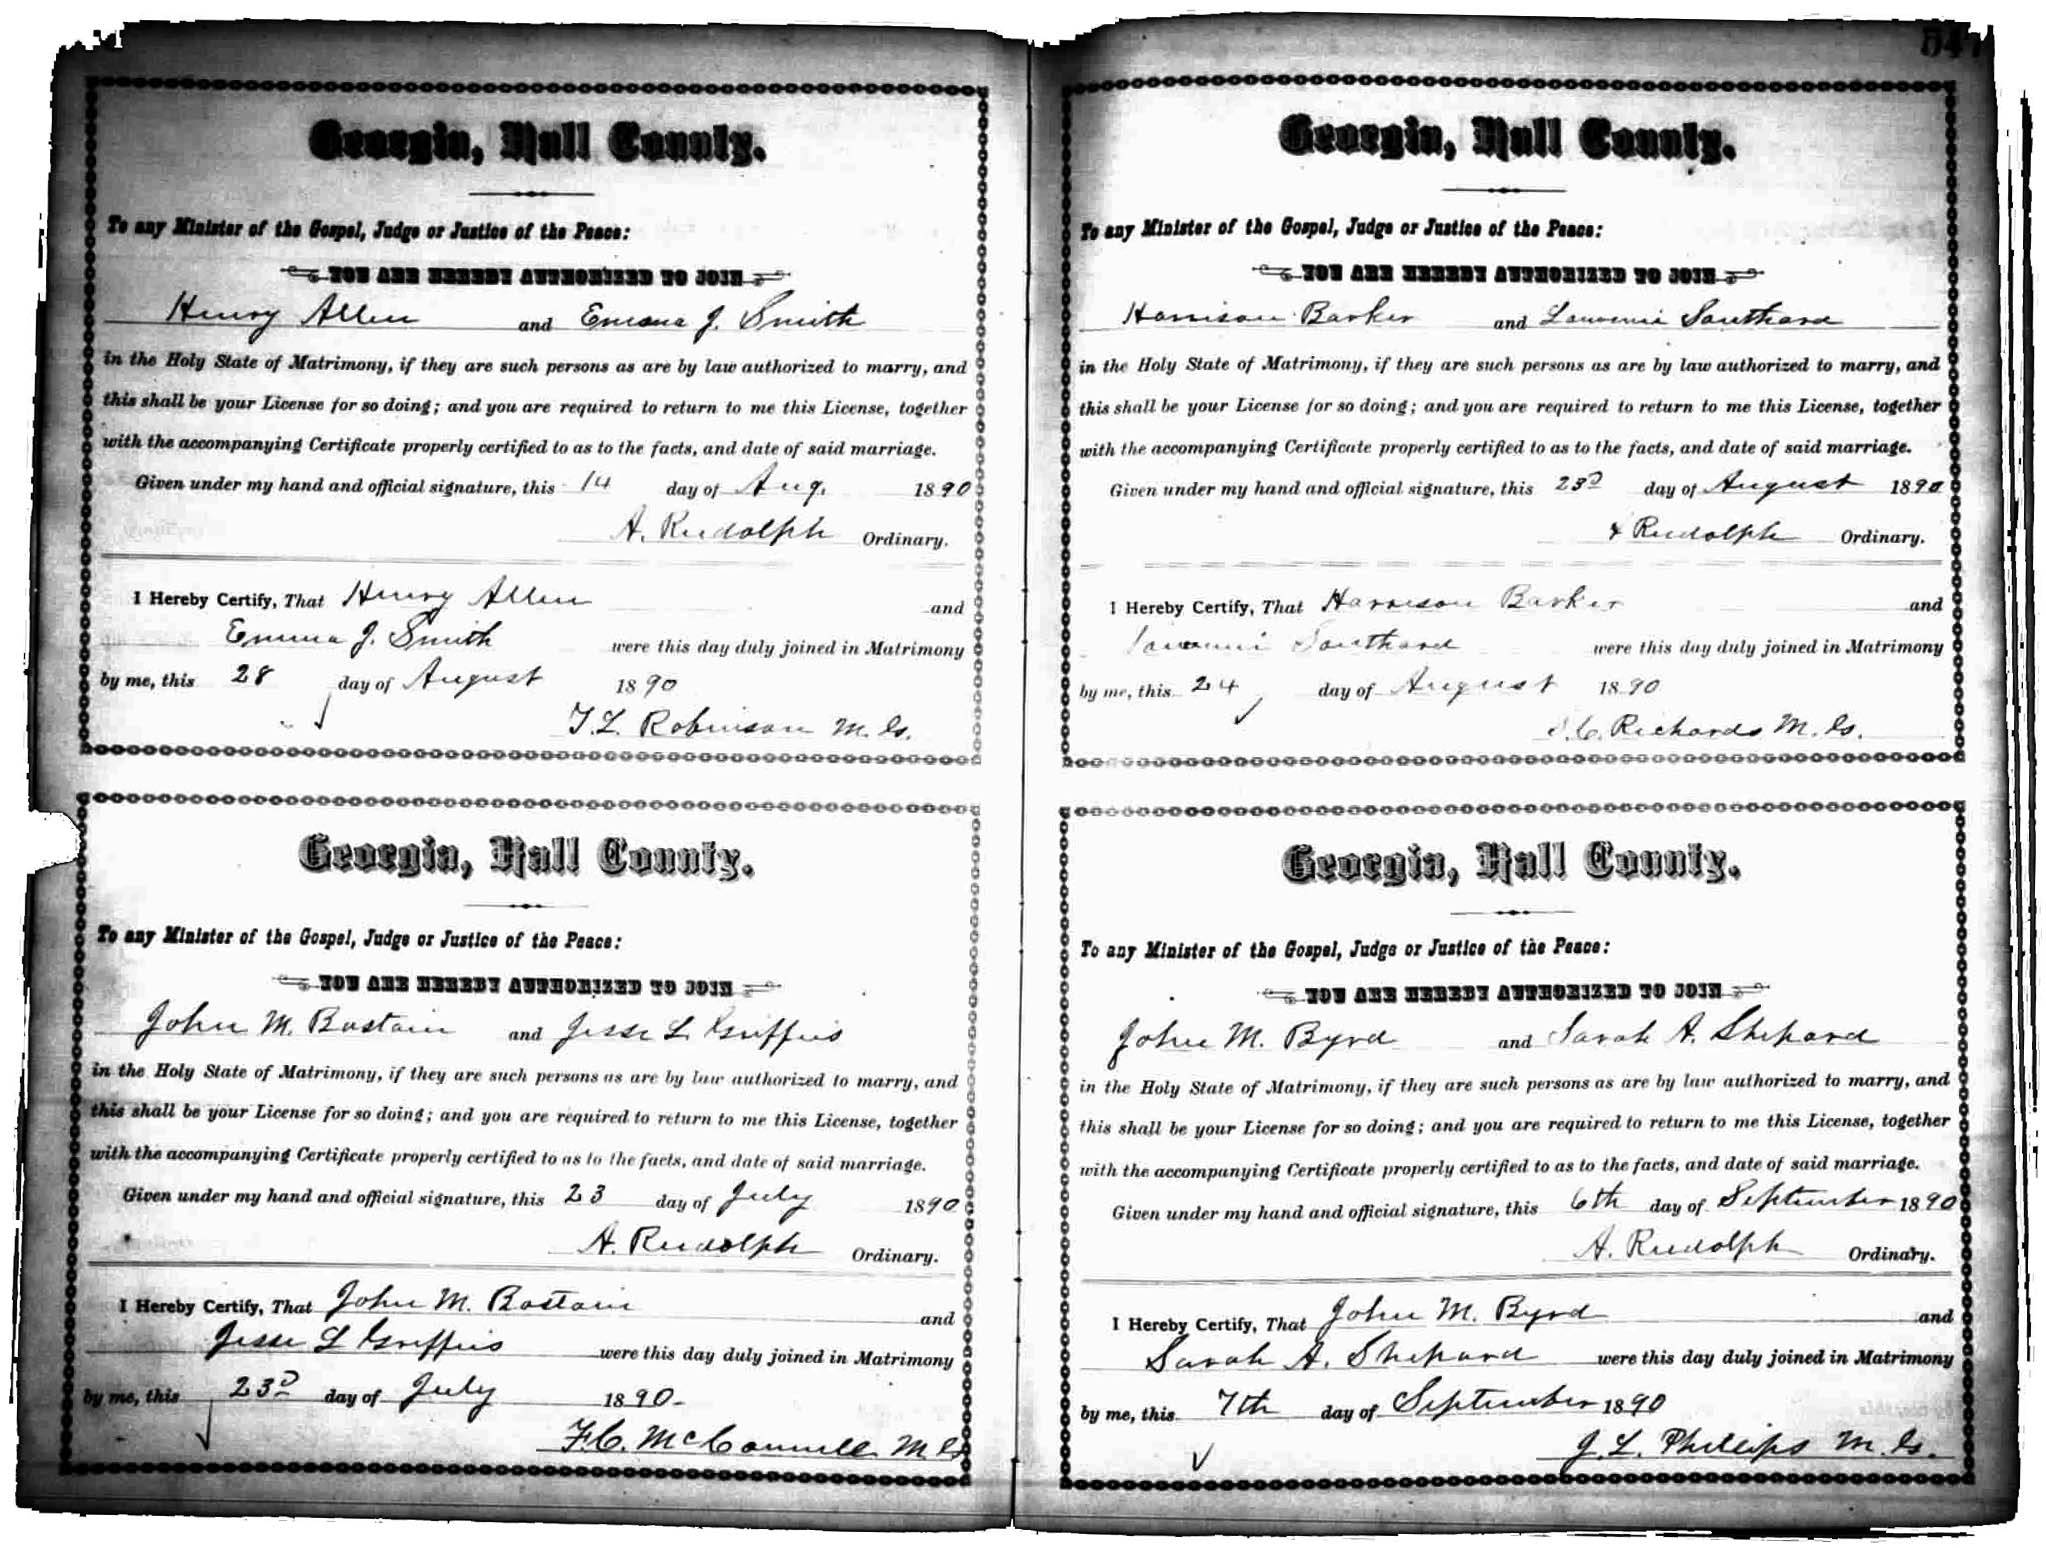 Georgia, Hall County.
To any Minister of the Gospel, Judge or Justice of the Peace:
YOU ARE HEREBY AUTHORIZED TO JOIN
Henry Allen and Emma J. Smith
in the Holy State of Matrimony, if they are such persons as are by law authorized to marry, and
this shall be your License for so doing; and you are required to return to me this License, together
with the accompanying Certificate properly certified to as to the facts, and date of said marriage.
Given under my hand and official signature, this 14 day of Aug. 1890
A. Rudolph Ordinary.
I Hereby Certify, That Henry Allen and
Emma J. Smith were this day duly joined in Matrimony
by me, this 28 day of August 1890
T. L. Robinson M. G.
Georgia, Hall County.
To any Minister of the Gospel, Judge or Justice of the Peace:
YOU ARE HEREBY AUTHORIZED TO JOIN
John M. Bostain and Jesse L Griffiis
in the Holy State of Matrimony, if they are such persons as are by law authorized to marry, and
this shall be your License for so doing; and you are required to return to me this License, together
with the accompanying Certificate properly certified to as to the facts, and date of said marriage.
Given under my hand and official signature, this 23 day of July 1890
A. Rudolph Ordinary.
I Hereby Certify, That John M. Bostain and
Jesse L Griffiis were this day duly joined in Matrimony
by me, this 23D day of July 1890-
F. C. McConnell M G
Georgia, Hall County.
To any Minister of the Gospel, Judge or Justice of the Peace:
YOU ARE HEREBY AUTHORIZED TO JOIN
Harrison Barker and Southard
in the Holy State of Matrimony, if they are such persons as are by law authorized to marry, and
this shall be your License for so doing; and you are required to return to me this License, together
with the accompanying Certificate properly certified to as to the facts, and date of said marriage.
Given under my hand and official signature, this 23D day of August 1890
A Rudolph Ordinary.
I Hereby Certify, That Harrison Barker and
Southard were this day duly joined in Matrimony
by me, this 24 day of August 1890
C. Richards M. G.
Georgia, Hall County.
To any Minister of the Gospel, Judge or Justice of the Peace:
YOU ARE HEREBY AUTHORIZED TO JOIN
John M. Byrd and Sarah A. Shepard
in the Holy State of Matrimony, if they are such persons as are by law authorized to marry, and
this shall be your License for so doing; and you are required to return to me this License, together
with the accompanying Certificate properly certified to as to the facts, and date of said marriage.
Given under my hand and official signature, this 6th day of September 1890
A. Rudolph Ordinary.
I Hereby Certify, That John M. Byrd and
Sarah A. Shepard were this day duly joined in Matrimony
by me, this 7th day of September 1890
J. L. Phillips M. G.